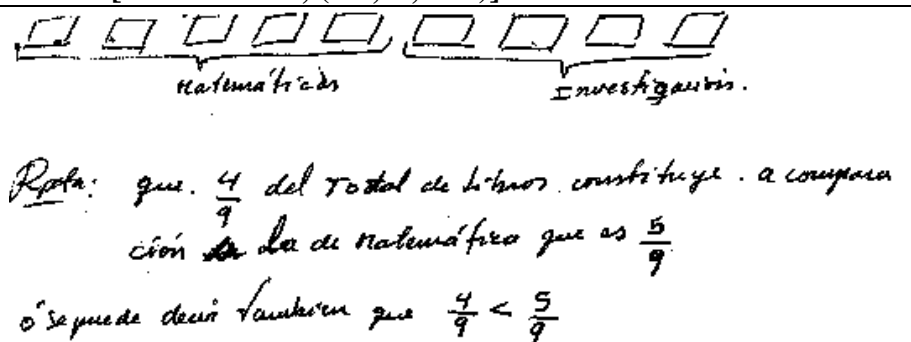 Matemáticas Investigación.
Rpta: que. 4/9 del Total de Libros constituye. a compara
ción la de Matemática que es 5/9
ó se puede decir También que 4/9 < 5/9